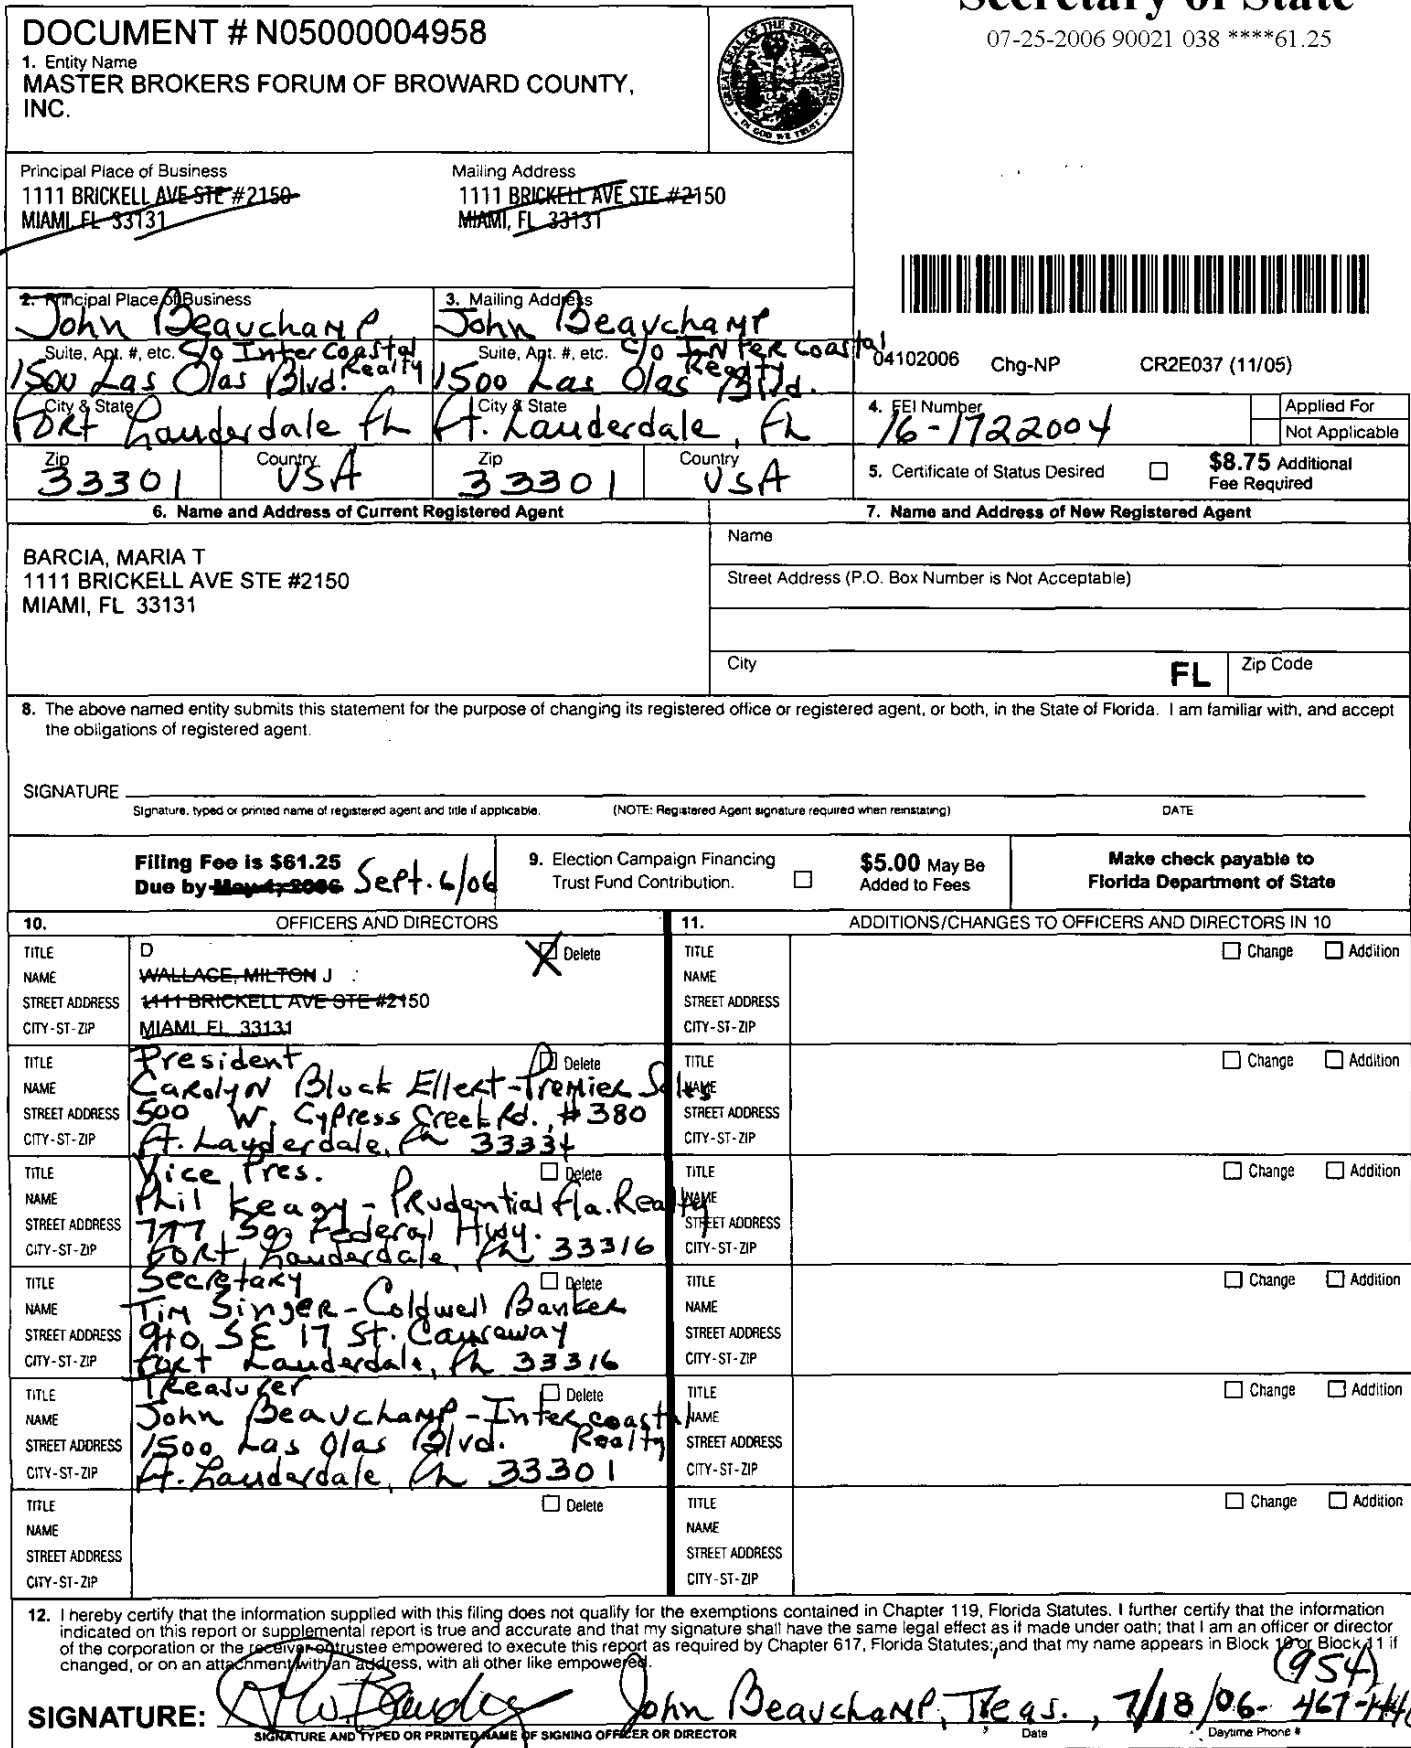 Secretary of State
07-25-2006 90021 038 ****61.25
DOCUMENT # N05000004958
1. Entity Name
MASTER BROKERS FORUM OF BROWARD COUNTY,
INC.
Principal Place of Business
1111 BRICKELL AVE STE #2150
MIAMI, FL 33131
Mailing Address
1111 BRICKELL AVE STE #2150
MIAMI, FL 33131
2. Principal Place of Business
John Beauchamp
Suite, Apt. #, etc. c/o InterCoastal Realty
1500 Las Olas Blvd.
City & State
Fort Lauderdale Fl
Zip
33301
Country
USA
3. Mailing Address
John Beauchamp
Suite, Apt. #, etc. c/o INTercoastal Realty
1500 Las Olas Blvd.
City & State
Ft. Lauderdale, Fl
Zip
33301
Country
USA
04102006 Chg-NP CR2E037 (11/05)
4. FEI Number
76-1722004
Applied For
Not Applicable
5. Certificate of Status Desired
$8.75 Additional
Fee Required
6. Name and Address of Current Registered Agent
BARCIA, MARIA T
1111 BRICKELL AVE STE #2150
MIAMI, FL 33131
7. Name and Address of New Registered Agent
Name
Street Address (P.O. Box Number is Not Acceptable)
City
FL
Zip Code
8. The above named entity submits this statement for the purpose of changing its registered office or registered agent, or both, in the State of Florida. I am familiar with, and accept
the obligations of registered agent.
SIGNATURE
Signature, typed or printed name of registered agent and title if applicable. (NOTE: Registered Agent signature required when reinstating) DATE
Filing Fee is $61.25
Due by May 1, 2006 Sept. 6/06
9. Election Campaign Financing
Trust Fund Contribution.
$5.00 May Be
Added to Fees
Make check payable to
Florida Department of State
10. OFFICERS AND DIRECTORS
11. ADDITIONS/CHANGES TO OFFICERS AND DIRECTORS IN 10
TITLE D Delete
NAME WALLACE, MILTON J
STREET ADDRESS 1111 BRICKELL AVE STE #2150
CITY-ST-ZIP MIAMI, FL 33131
TITLE Change Addition
NAME
STREET ADDRESS
CITY-ST-ZIP
TITLE President Delete
NAME Carolyn Block Ellert-Premier Sales
STREET ADDRESS 500 W. Cypress Creek Rd., #380
CITY-ST-ZIP Ft. Lauderdale, Fl 33334
TITLE Change Addition
NAME
STREET ADDRESS
CITY-ST-ZIP
TITLE Vice Pres. Delete
NAME Phil Keagy - Prudential Fla. Realty
STREET ADDRESS 777 So. Federal Hwy.
CITY-ST-ZIP Fort Lauderdale, Fl 33316
TITLE Change Addition
NAME
STREET ADDRESS
CITY-ST-ZIP
TITLE Secretary Delete
NAME Tim Singer-Coldwell Banker
STREET ADDRESS 910 SE 17 St. Causeway
CITY-ST-ZIP Fort Lauderdale, Fl 33316
TITLE Change Addition
NAME
STREET ADDRESS
CITY-ST-ZIP
TITLE Treasurer Delete
NAME John Beauchamp-Intercoastal
STREET ADDRESS 1500 Las Olas Blvd. Realty
CITY-ST-ZIP Ft. Lauderdale, Fl 33301
TITLE Change Addition
NAME
STREET ADDRESS
CITY-ST-ZIP
TITLE Delete
NAME
STREET ADDRESS
CITY-ST-ZIP
TITLE Change Addition
NAME
STREET ADDRESS
CITY-ST-ZIP
12. I hereby certify that the information supplied with this filing does not qualify for the exemptions contained in Chapter 119, Florida Statutes. I further certify that the information
indicated on this report or supplemental report is true and accurate and that my signature shall have the same legal effect as if made under oath; that I am an officer or director
of the corporation or the receiver or trustee empowered to execute this report as required by Chapter 617, Florida Statutes; and that my name appears in Block 10 or Block 11 if
changed, or on an attachment with an address, with all other like empowered.
(954)
SIGNATURE: John Beauchamp, Treas., 7/18/06- 467-
SIGNATURE AND TYPED OR PRINTED NAME OF SIGNING OFFICER OR DIRECTOR Date Daytime Phone #